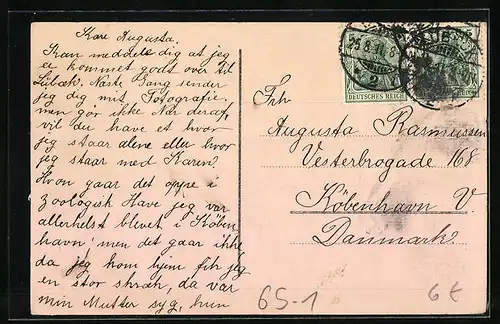 Kære Augusta.
Kan meddele dig at jeg
er kommet godt over til
Lübæk. Næste Gang sender
jeg dig mit Fotografie
men gör ikke Nar deraf,
vil du have et hvor
jeg staar alene eller hvor
jeg staar med Karen.
Hvon gaar det oppe i
Zoologisk Have jeg var
allerhelst blevet i Köben
havn; men det gaar ikke
da jeg kom hjem fik jeg
en stor skræk, da var
min Mutter syg, hun
25.8.11.
DEUTSCHES REICH
REICH
Frk
Augusta Rasmussen
Vesterbrogade 168
Köbenhavn V
Danmark.
65-1
6€